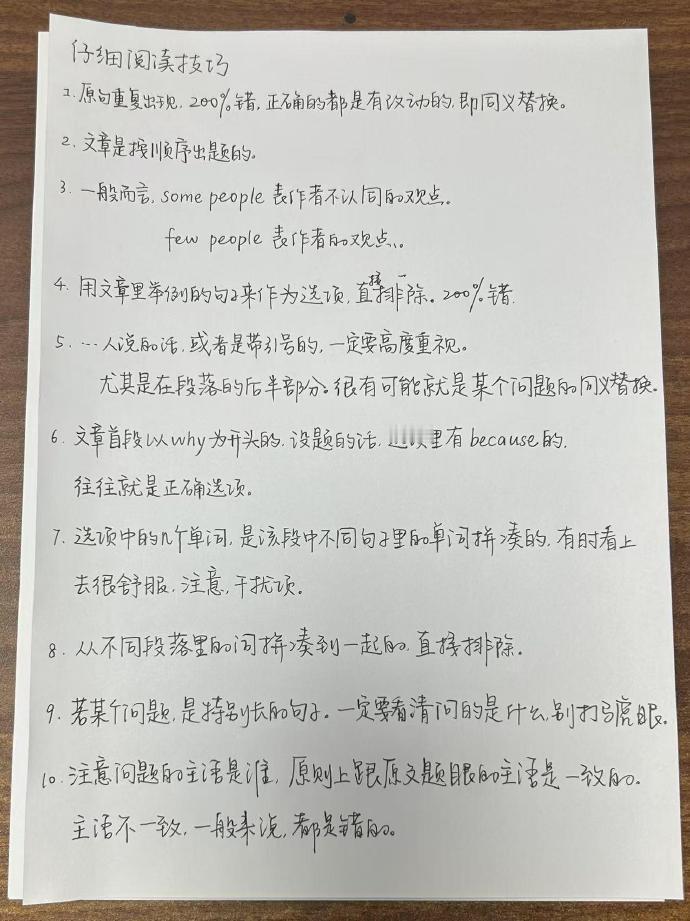 仔细阅读技巧
1. 原句重复出现, 200%错, 正确的都是有改动的, 即同义替换。
2. 文章是按顺序出题的。
3. 一般而言, some people 表作者不认同的观点。
few people 表作者的观点。
4. 用文章里举例的句子来作为选项, 直接排除。200%错.
5. …人说的话, 或者是带引号的, 一定要高度重视。
尤其是在段落的后半部分。很有可能就是某个问题的同义替换。
6. 文章首段以why为开头的, 设题的话, 里有because的,
往往就是正确选项。
7. 选项中的n个单词, 是该段中不同句子里的单词拼凑的, 有时看上
去很舒服, 注意, 干扰项.
8. 从不同段落里的词拼凑到一起的, 直接排除.
9. 若某个问题, 是特别长的句子. 一定要看清问的是什么, 别打马虎眼.
10. 注意问题的主语是谁, 原则上跟原文题眼的主语是一致的.
主语不一致, 一般来说, 都是错的。